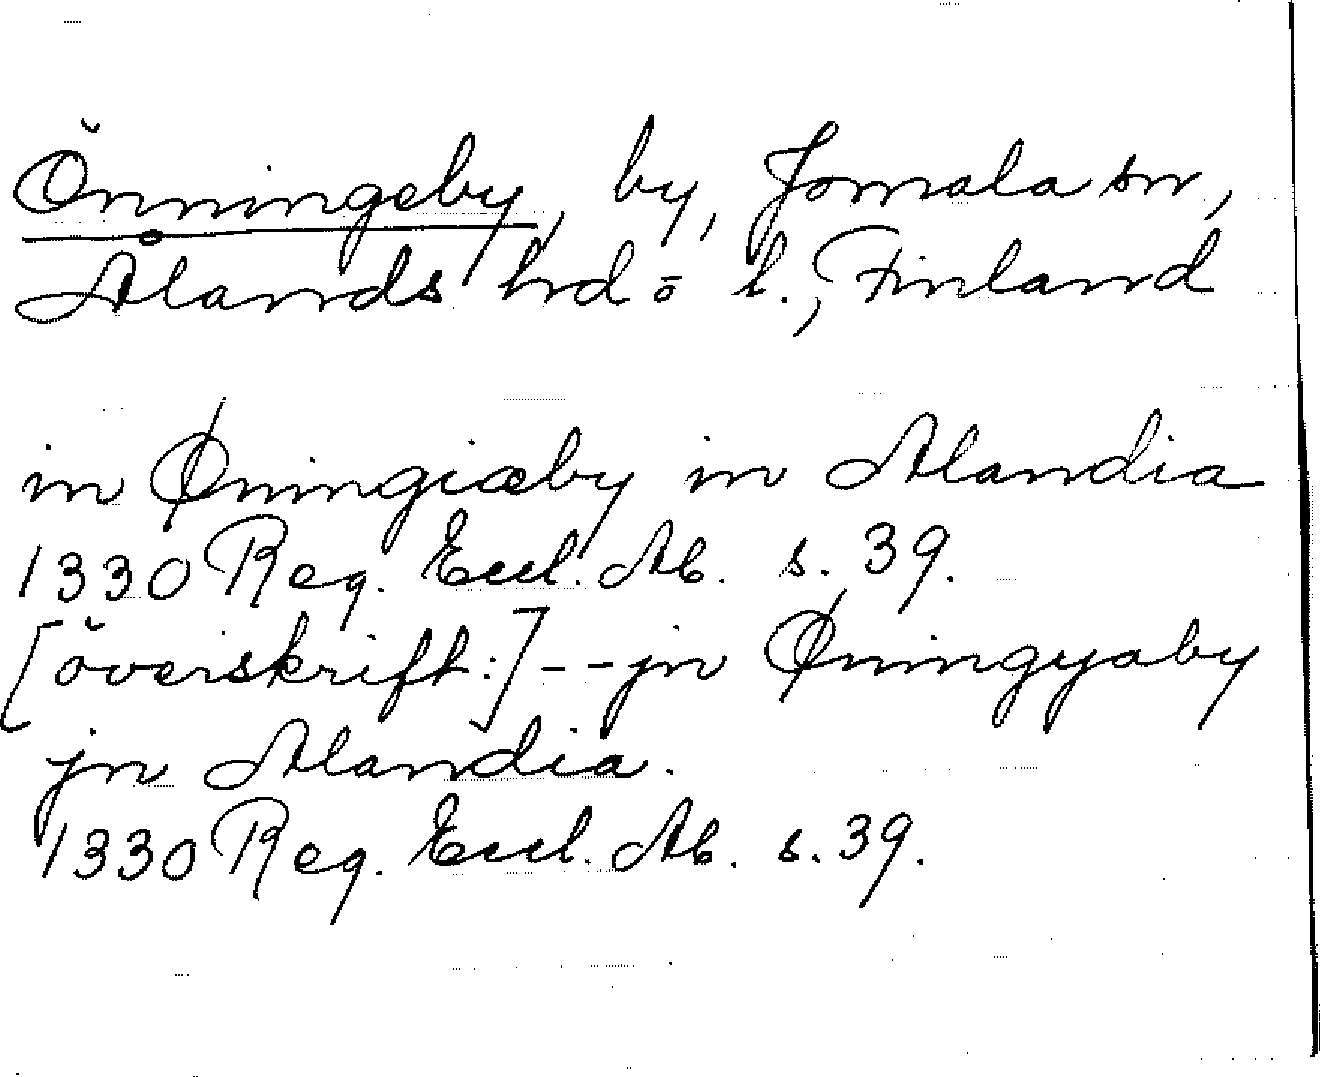 Önningeby, by, Jomala sn,
Ålands hrd o l., Finland
in Øningiæby in Alandia
1330 Reg. Eccl. Ab. s. 39.
[överskrift:] -- jn Øningyaby
jn Alandia.
1330 Reg. Eccl. Ab. s. 39.